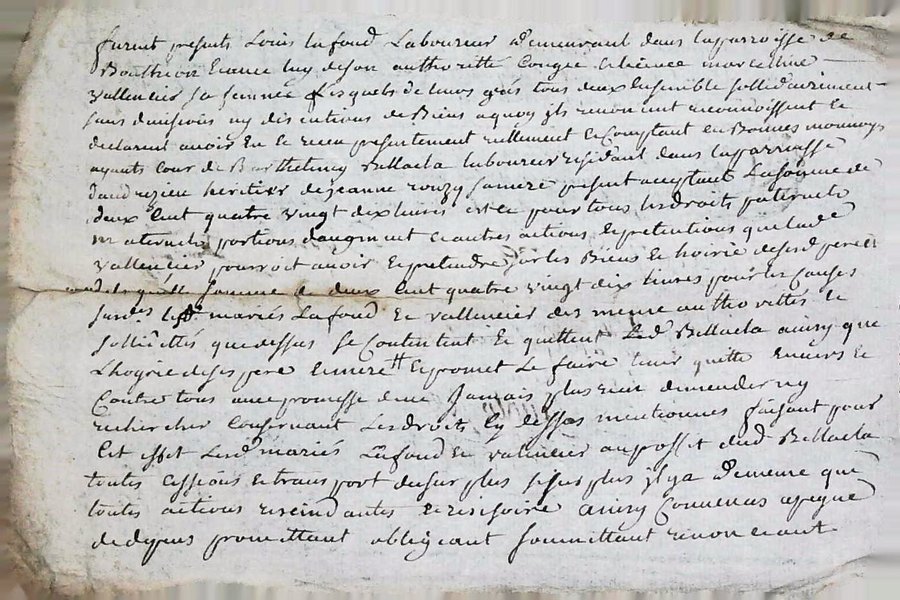 furent presents Louis Lafond Laboureur demeurant dans la parroisse de
Bonthéon et avec luy de son authorité congée et licence marceline
Vallencier sa femme Lesquels de leurs grés tous deux Ensemble sollidairement
sans division ny discutions de Biens a quoy ils renoncent reconnoissent Et
declarent avoir Eu Et receu présentement reellement Et Comptant en Bonnes monnoys
ayants cour de Barthelemy Bellacla laboureur residant dans la parroisse
dandrezieu heritier de jeanne rouzy sa mere présent acceptant La somme de
deux Cent quatre vingt dix livres et ce pour tous les droits paternels
maternels portions daugment et autres actions Et pretentions que lade
Vallencier pourroit avoir Et pretendre sur les Biens Et hoirie de sesd pere et
mere de laquelle somme de deux Cent quatre vingt dix livres pour les causes
susdes lesd mariés Lafond Et Vallencier des meme authorittés Et
sollicittés que dessus se Contentent Et quittent Led Bellacla ainsy que
Lhoyrie de ses pere Et mere Et promet Le faire tenir quitte Envers Et
Contre tous avec promesse de ne Jamais plus rien demender ny
rechercher Concernant Les droits Cy dessus mentionnes faisant pour
Cet effet Lesd mariés Lafond Et Vallencier au proffit dud Bellacla
toutes Cessions Et transport du surplus si surplus il y a de meme que
toutes actions rescindantes Et rescisoire ainsy Convenus a peyne
de depens promettant obligeant soumettant renonceant